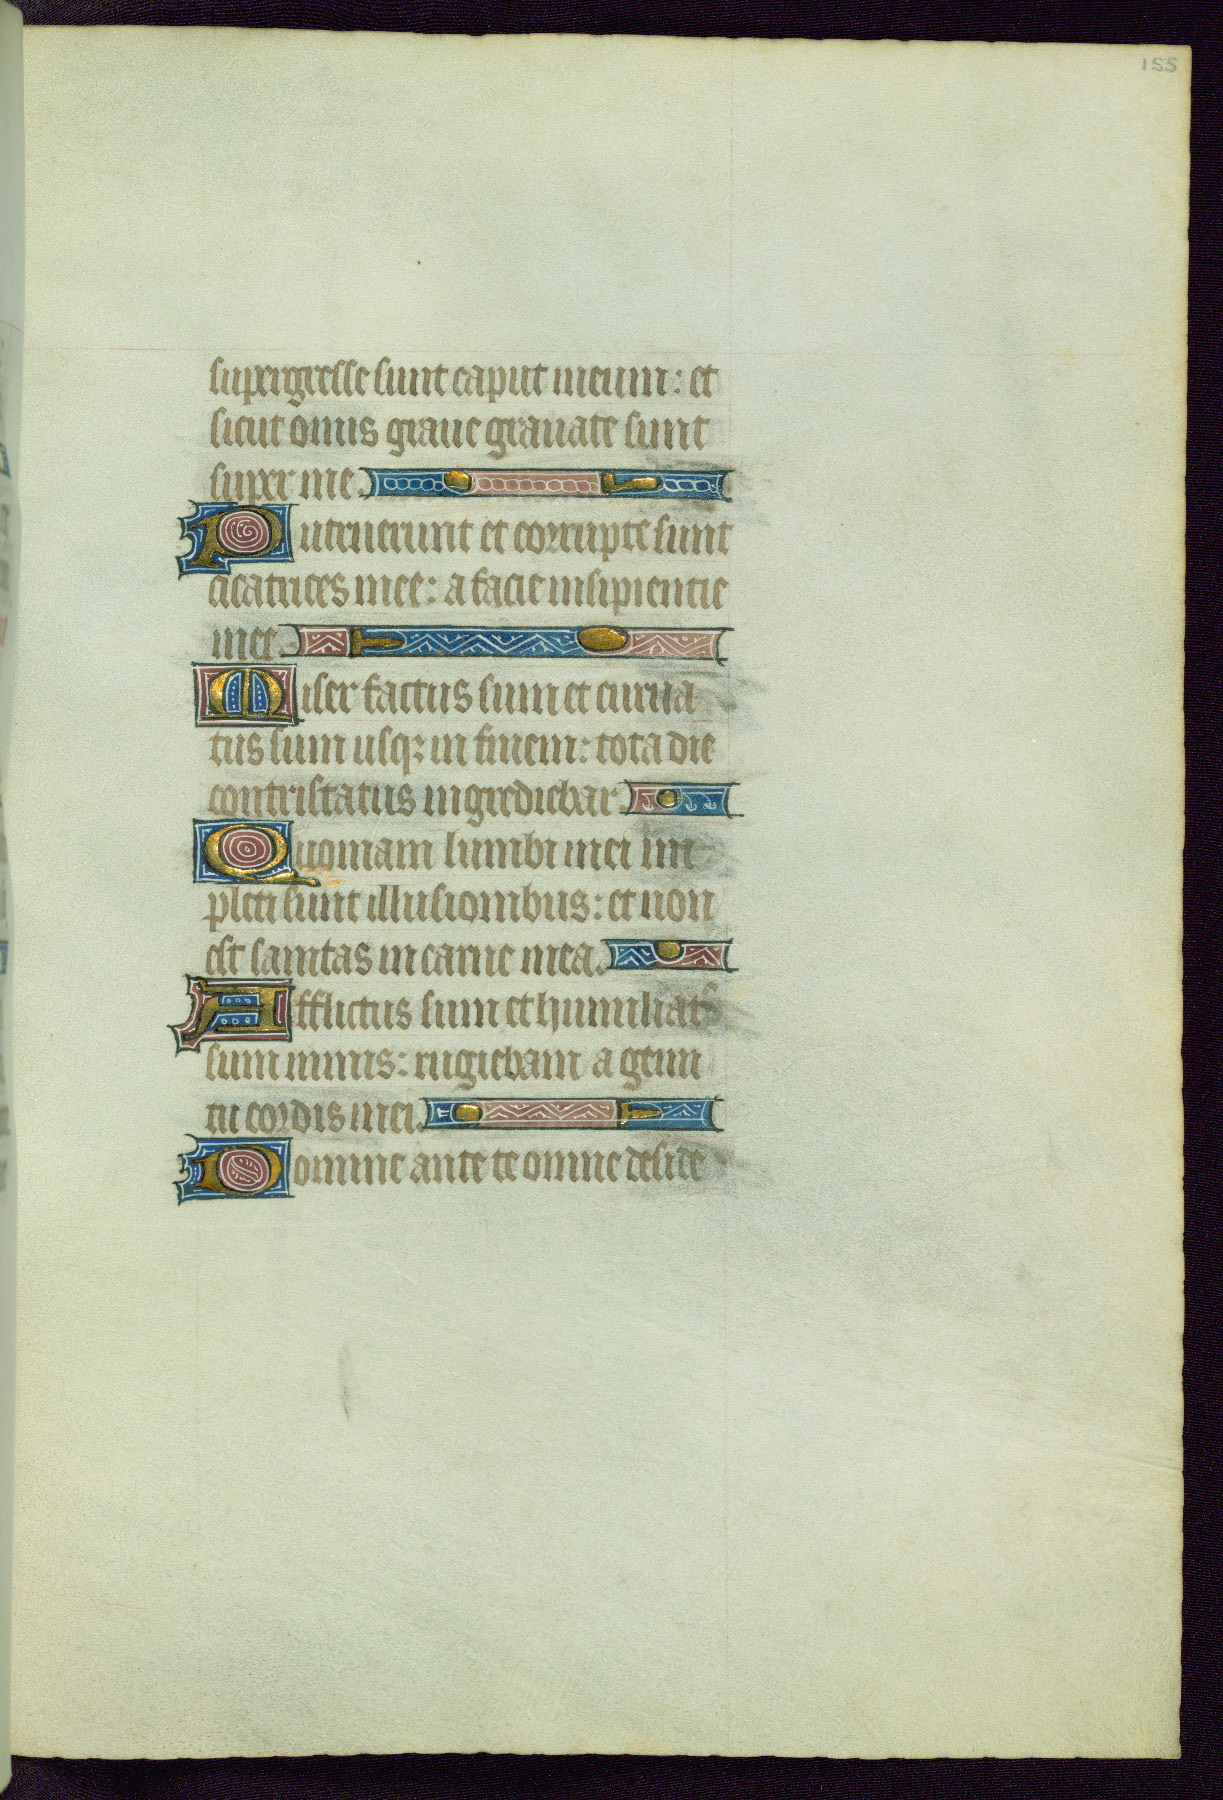 155
supergresse sunt caput meum: et
sicut onus graue grauate sunt
super me.
Putruerunt et corrupte sunt
cicatrices mee: a facie insipientie
mee.
Miser factus sum et curua
tus sum usqꝫ in finem: tota die
contristatus ingrediebar
Quoniam lumbi mei im
pleti sunt illusionibus: et non
est sanitas in carne mea.
Afflictus sum et humiliatꝰ
sum nimis: rugiebam a gemi
tu cordis mei.
Domine ante te omne deside